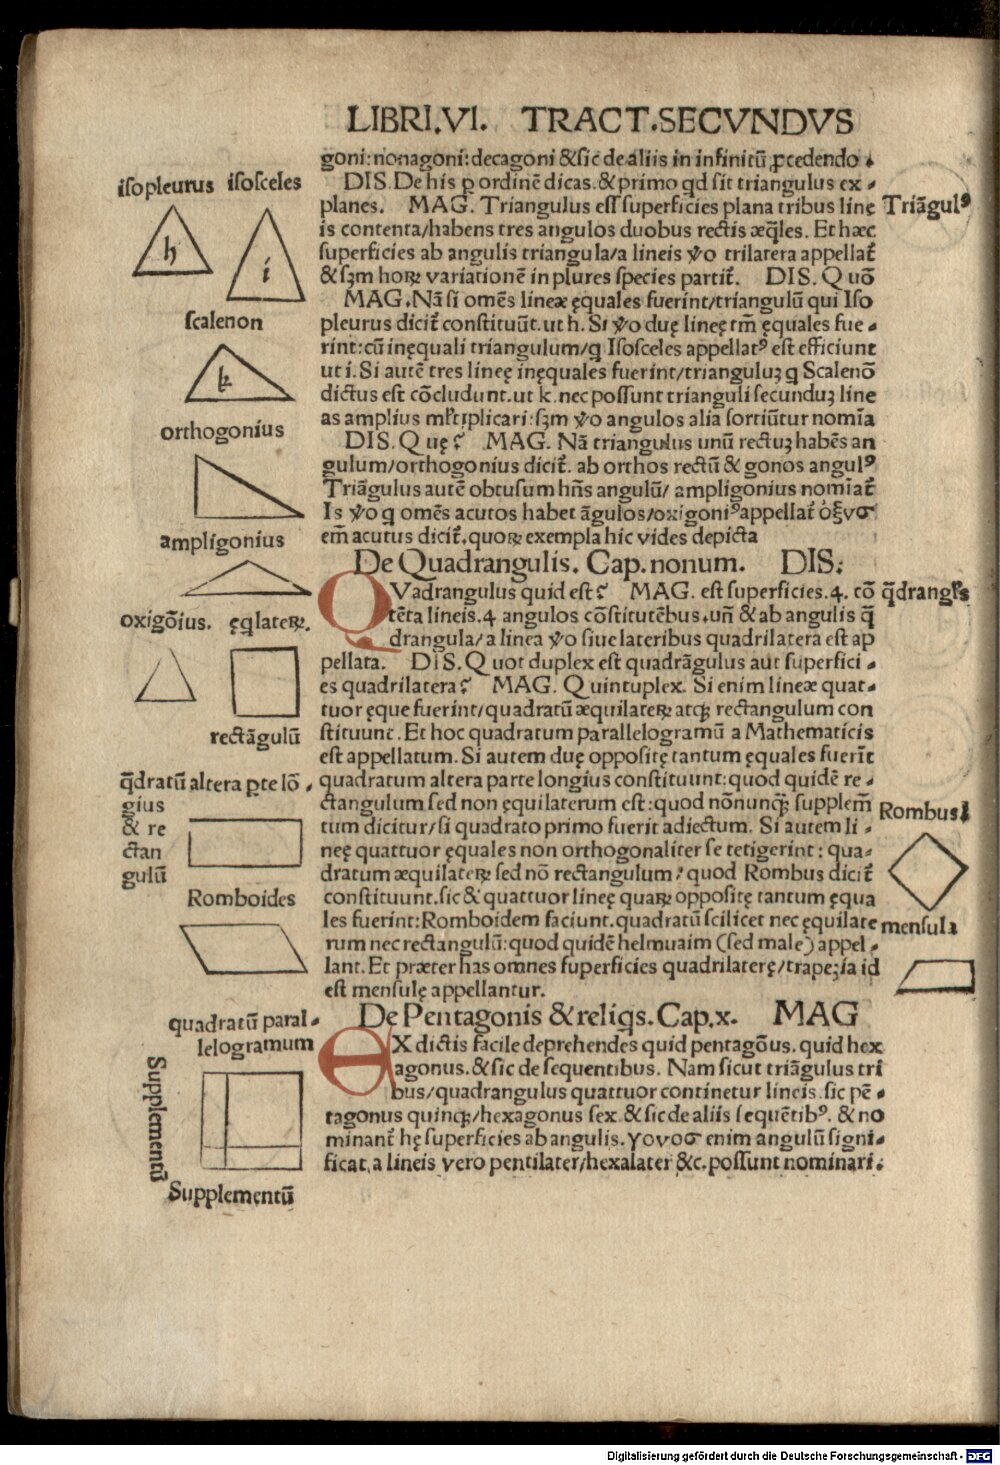 LIBRI.VI. TRACT.SECVNDVS
goni:nonagoni:decagoni &sic de aliis in infinitũ ꝓcedendo .
DIS. De his ꝑ ordinẽ dicas.&primo qd sit triangulus ex-
planes. MAG. Triangulus est superficies plana tribus line
is contenta/habens tres angulos duobus rectis æq̃les. Et hæc
superficies ab angulis triangula/a lineis ṽo trilatera appellat̃
& sꝫm horꝝ variationẽ in plures species partit̃. DIS. Q uõ
MAG. Nã si omẽs lineæ ęquales fuerint/triangulũ qui Iso
pleurus dicit̃ constituũt.ut h. Si ṽo duę lineę tm̃ ęquales fue-
rint:cũ inęquali triangulum/q Isosceles appellatꝰ est efficiunt
ut i. Si autẽ tres lineę inęquales fuerint/trianguluꝫ q Scalenõ
dictus est cõcludunt.ut k. nec possunt trianguli secunduꝫ line
as amplius mľtiplicari:sꝫm ṽo angulos alia sortiũtur nomĩa
DIS. Q uę? MAG. Nã triangulus unũ rectuꝫ habẽs an
gulum/orthogonius dicit̃. ab orthos rectũ & gonos angulꝰ
Triãgulus autẽ obtusum hñs angulũ/ ampligonius nomĩat̃
Is ṽo q omẽs acutos habet ãgulos/oxigoniꝰ appellat̃ ὀξυσ
em̃ acutus dicit̃.quorꝝ exempla hic vides depicta
De Quadrangulis. Cap. nonum. DIS:
QVadrangulus quid est? MAG. est superficies.4. cõ
tẽta lineis.4 angulos cõstitutẽbus.uñ & ab angulis q̃
drangula/a linea ṽo siue lateribus quadrilatera est ap
pellata. DIS. Q uot duplex est quadrãgulus aut superfici-
es quadrilatera? MAG. Q uintuplex. Si enim lineæ quat-
tuor ęque fuerint/quadratũ æquilaterꝝ atqꝫ rectangulum con
stituunt. Et hoc quadratum parallelogramũ a Mathematicis
est appellatum. Si autem duę oppositę tantum ęquales fuerĩt
quadratum altera parte longius constituunt:quod quidẽ re-
ctangulum sed non ęquilaterum est:quod nõnunq̃ꝫ supplem̃
tum dicitur/si quadrato primo fuerit adiectum. Si autem li-
neę quattuor ęquales non orthogonaliter se tetigerint: qua-
dratum æquilaterꝝ sed nõ rectangulum: quod Rombus dicit̃
constituunt.sic & quattuor lineę quarꝝ oppositę tantum ęqua
les fuerint:Romboidem faciunt.quadratũ scilicet nec ęquilate
rum nec rectangulũ:quod quidẽ helmuaim (sed male) appel-
lant. Et præter has omnes superficies quadrilaterę/trapeꝫia id
est mensulę appellantur.
De Pentagonis & reliqs. Cap.x. MAG
EX dictis facile deprehendes quid pentagõus. quid hex
agonus. & sic de sequentibus. Nam sicut triãgulus tri
bus/quadrangulus quattuor continetur lineis.sic pẽ-
tagonus quinqꝫ/hexagonus sex.& sic de aliis sequẽtibꝰ. & no
minant̃ hę superficies ab angulis. γονοσ enim angulũ signi-
ficat.a lineis vero pentilater/hexalater &c.possunt nominari:
isopleurus isosceles
h
i
scalenon
k
orthogonius
ampligonius
oxigõius. ęq̃laterꝝ.
rectãgulũ
q̃dratũ altera ꝑte lõ-
gius
& re
ctan
gulũ
Romboides
quadratũ paral-
lelogramum
Supplementũ
Supplementũ
Triãgulꝰ
q̃drangľs
Rombus
mensula
Digitalisierung gefördert durch die Deutsche Forschungsgemeinschaft - DFG